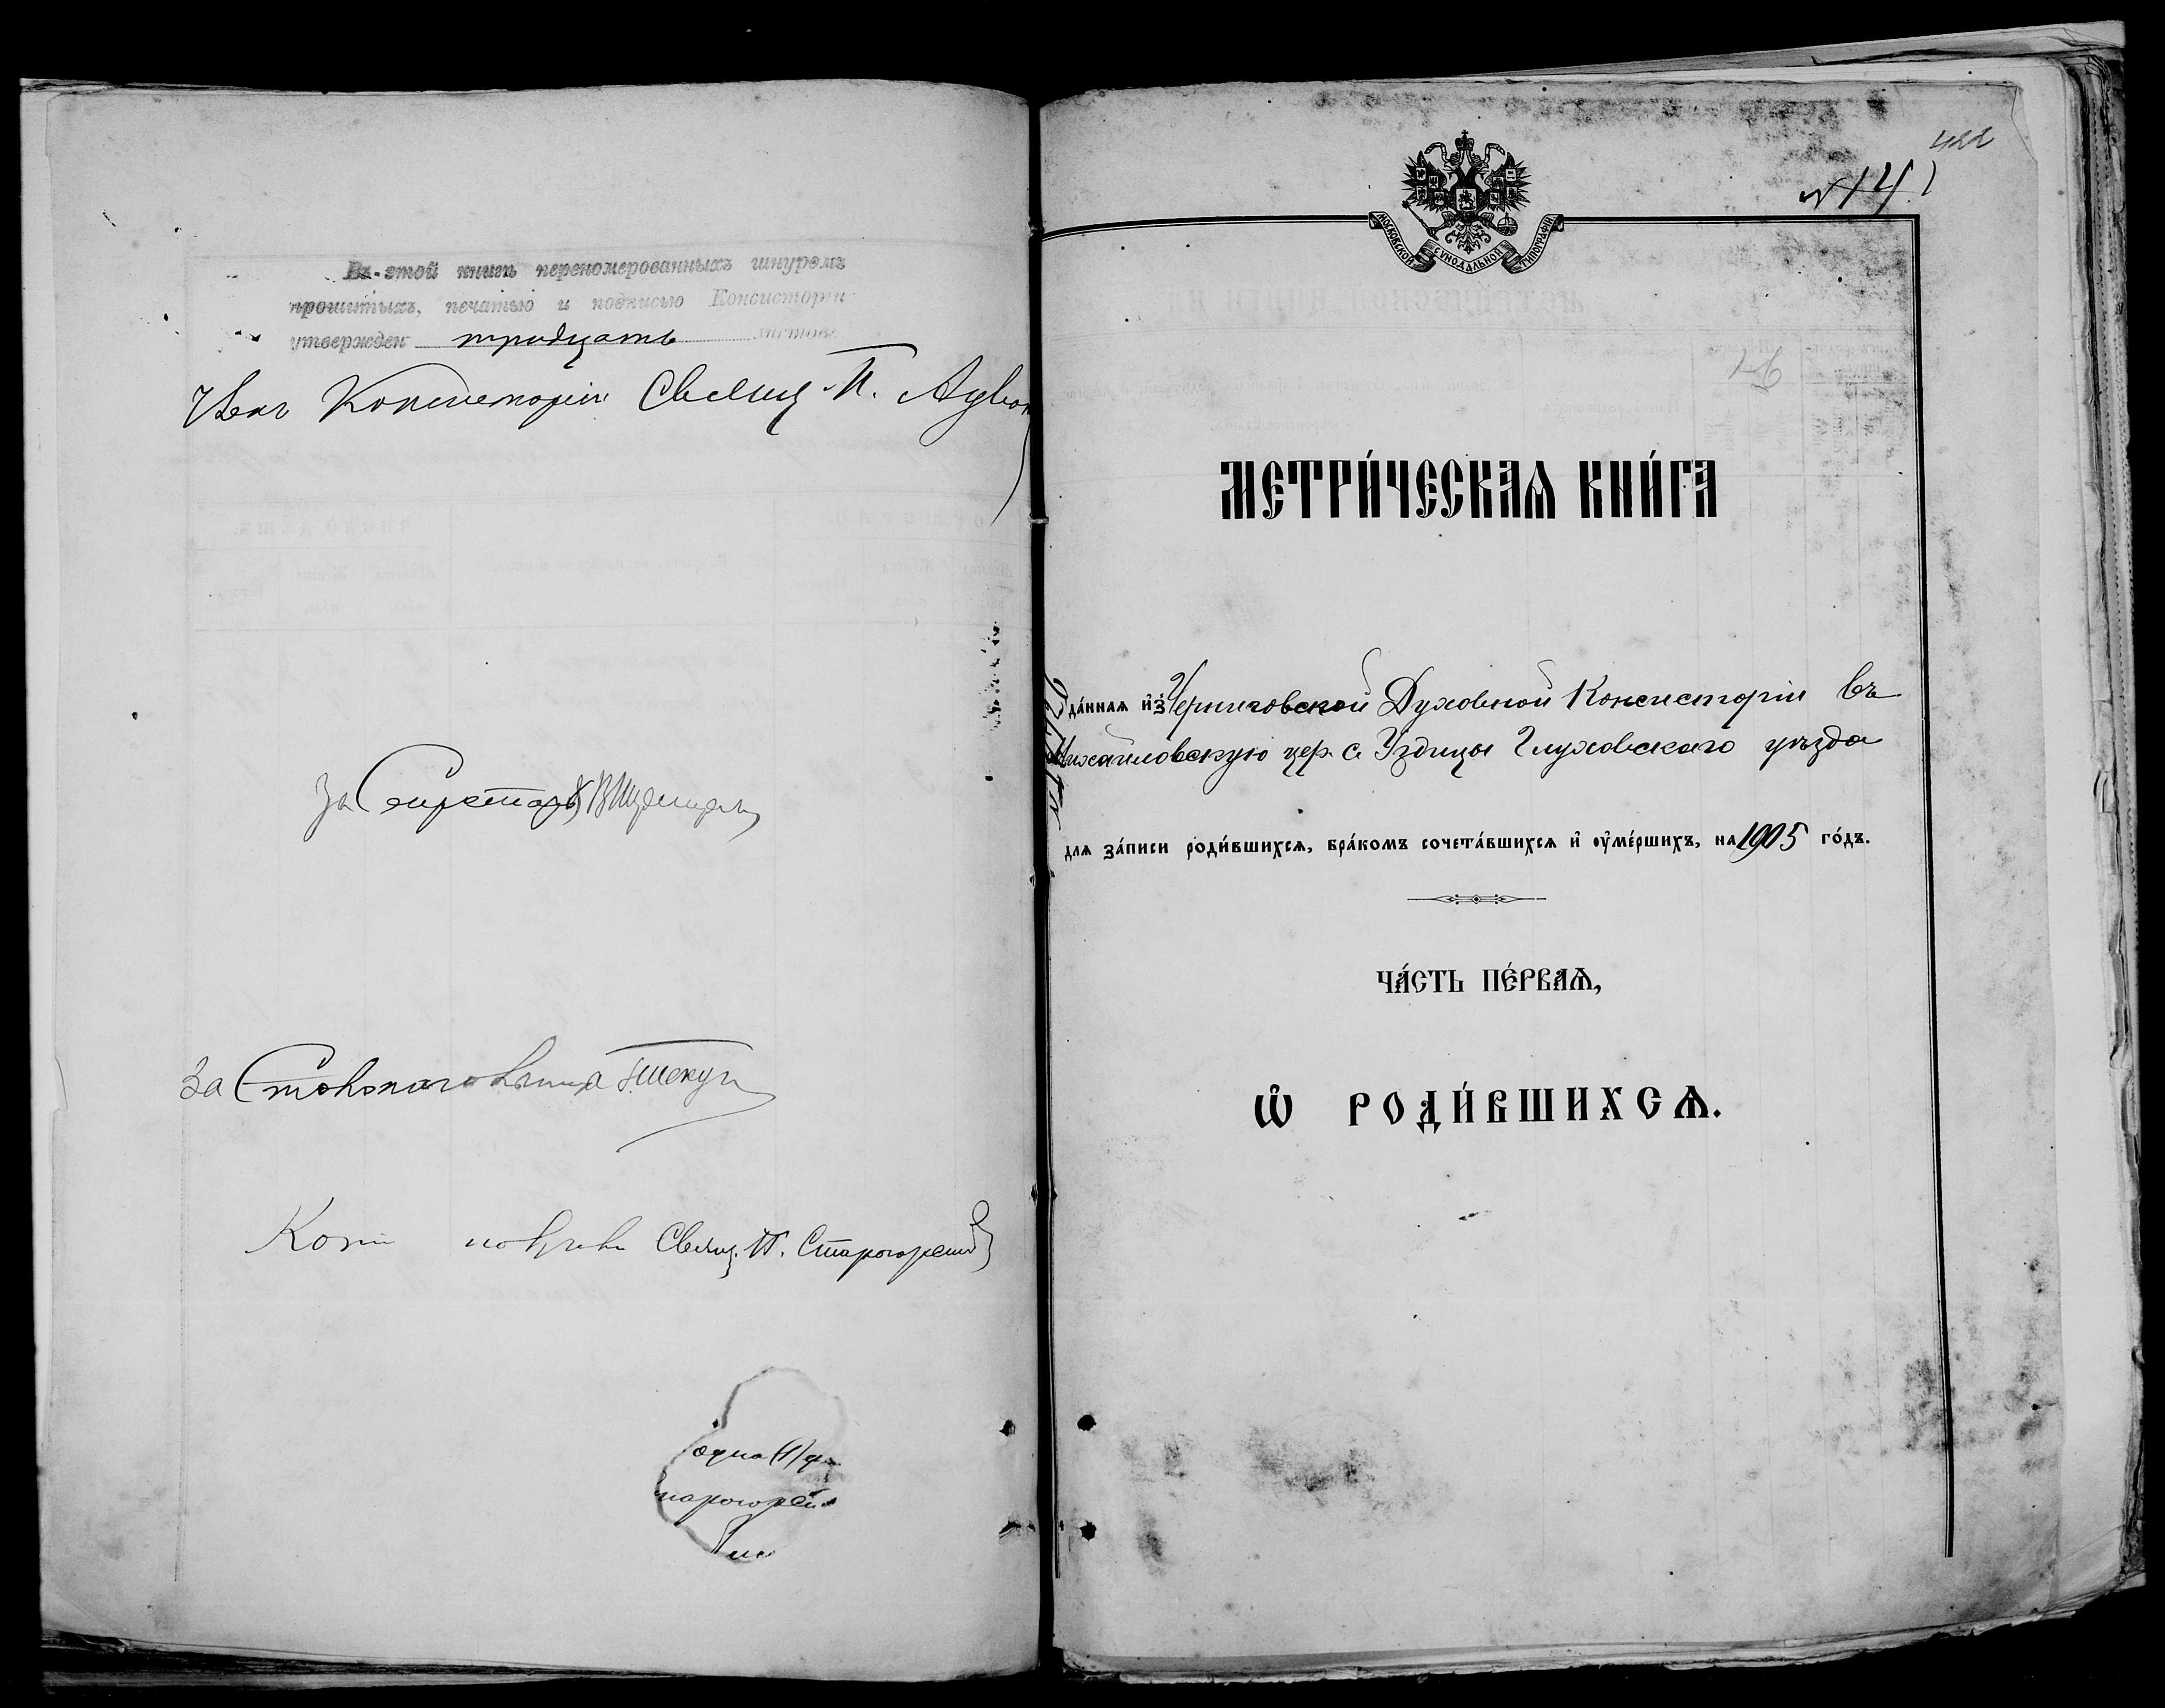 Въ этой книгѣ перекомерованныхъ шнуромъ
прошитыхъ, печатью и подписью Консисторіи
утвержден тридцать листов
Член Консисторіи Свящ. П.
За Секретаря
За Столоначальника
Свящ. П.
одна (1)
422
№ 14
МОСКОВСКОЙ СѴНОДАЛЬНОЙ ТИПОГРАФІИ
МЕТРИ́ЧЕСКАѦ КНИ́ГА
да́ннаѧ и҆з̾ Черниговской Духовной Консисторіи въ
Михайловскую цер. с. Уздицы Глуховскаго уѣзда
для за́писи роди́вшихсѧ, бра́комъ сочета́вшихсѧ и҆ ᲂу҆ме́ршихъ, на 1905 го́дъ.
ЧА́СТЬ ПЕ́РВАѦ,
Ѽ РОДИ́ВШИХСѦ.